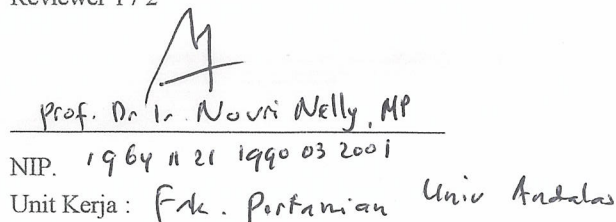 Reviewer 1 / 2
Prof. Dr. Ir. Novri Nelly, MP
NIP. 1964 11 21 1990 03 2001
Unit Kerja : Fak. Pertanian Univ Andalas